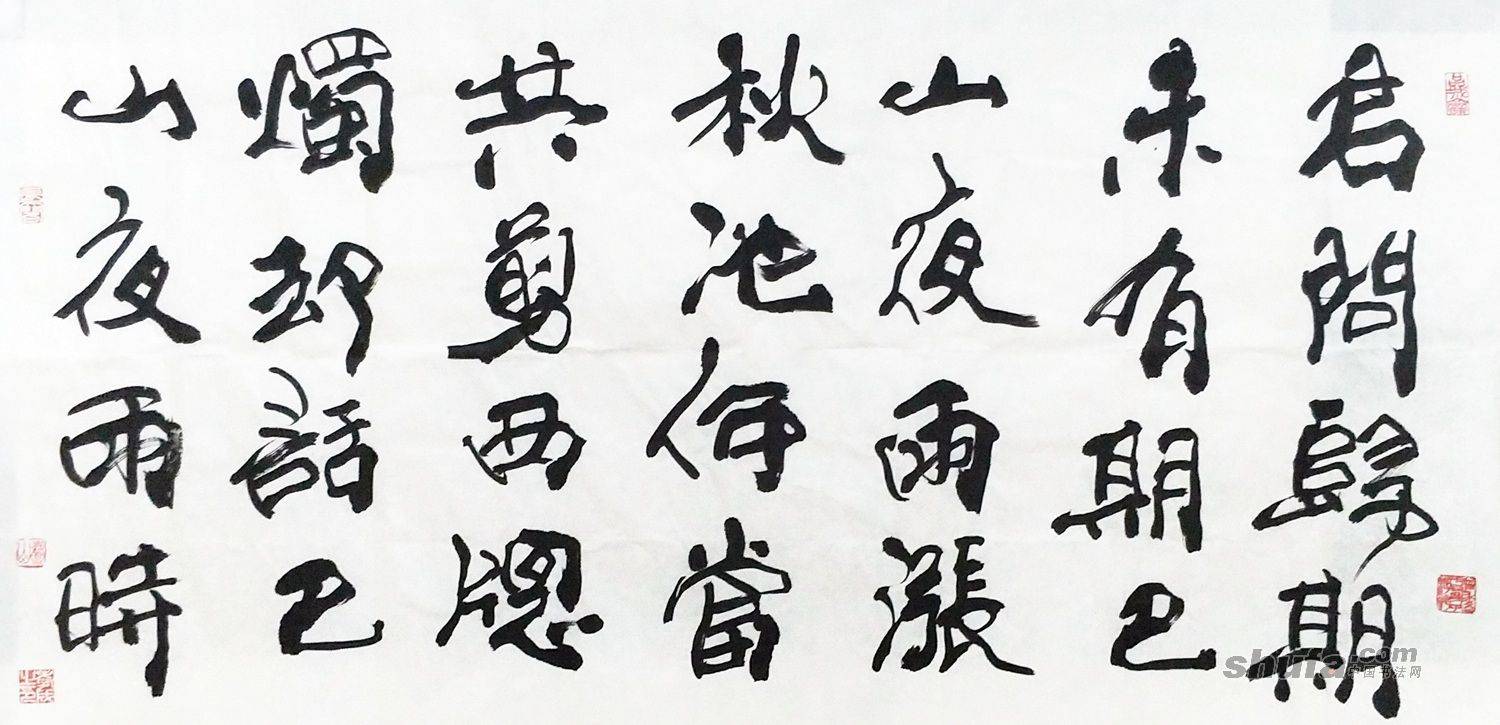 君問歸期
未有期巴
山夜雨漲
秋池何當
共剪西窗
燭却話巴
山夜雨時
shufa.com
中国书法网